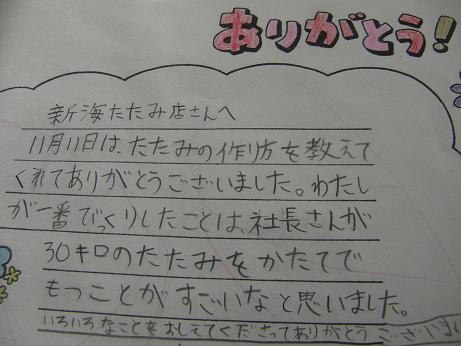 ありがとう!
新海たたみ店さんへ
11月11日は、たたみの作り方を教えて
くれてありがとうございました。わたし
が一番びっくりしたことは、社長さんが
30キロのたたみをかたてで
もつことがすごいなと思いました。
いろいろなことをおしえてくださってありがとうございまし